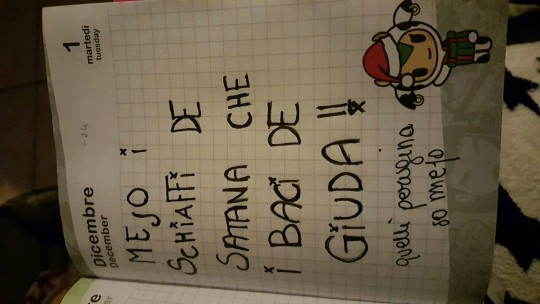 1
martedì
tuesday
-24
Dicembre
December
MEJO i
SCHiAFFi DE
SATANA CHE
i BACi DE
GiUDA !!
quelli perugina
so mejo